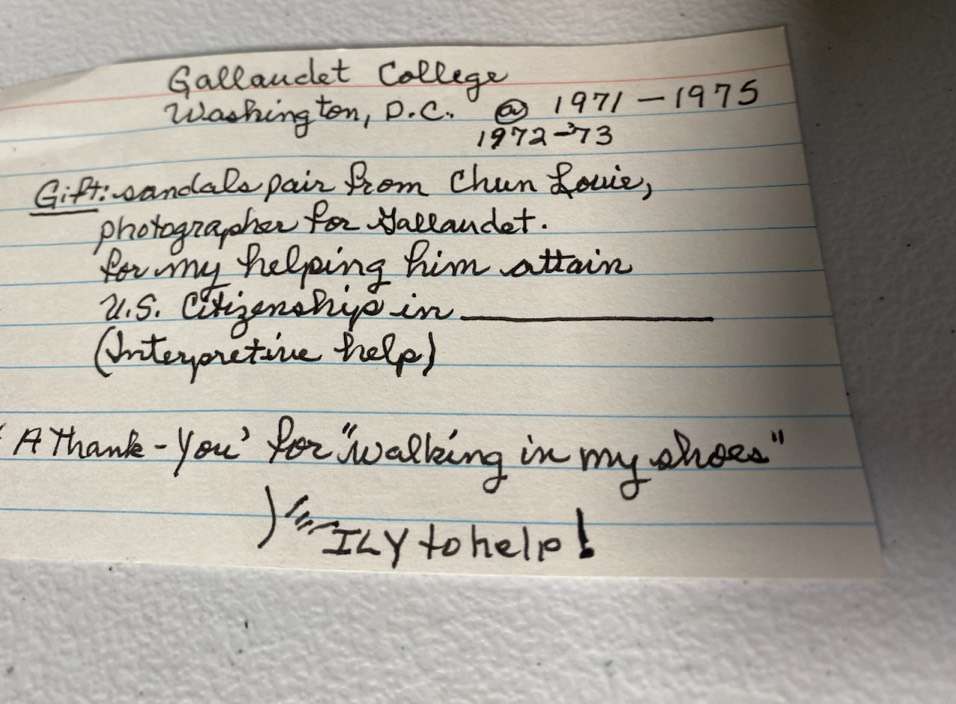 Gallaudet College
Washington, D.C. @ 1971-1975
1972-73
Gift: sandals pair from Chun Louie,
photographer for Gallaudet.
for my helping him attain
U.S. Citizenship in ____________
(Interpretive help)
'A Thank-You' for "walking in my shoes"
ILY to help!